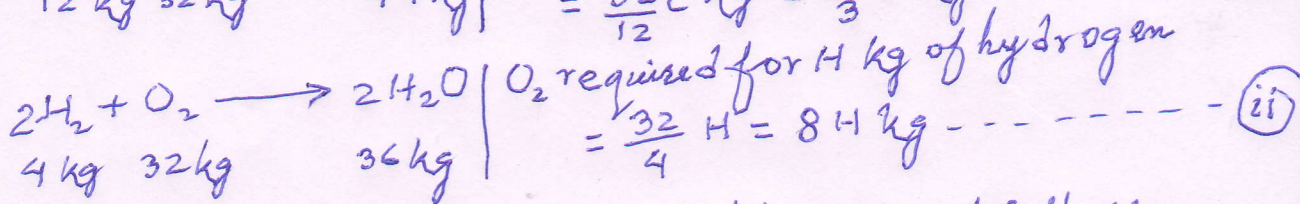 12 kg 32 kg
12 3
2H₂ + O₂ ⟶ 2H₂O | O₂ required for H kg of hydrogen
4 kg 32 kg 36 kg = 32/4 H = 8 H kg - - - - - - - - - (ii)